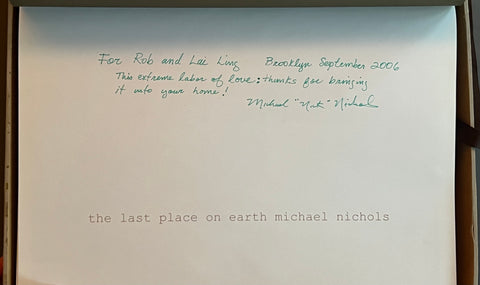 For Rob and Lai Ling Brooklyn September 2006
This extreme labor of love; thanks for bringing
it into your home!
Michael "Nick" Nichols
the last place on earth michael nichols